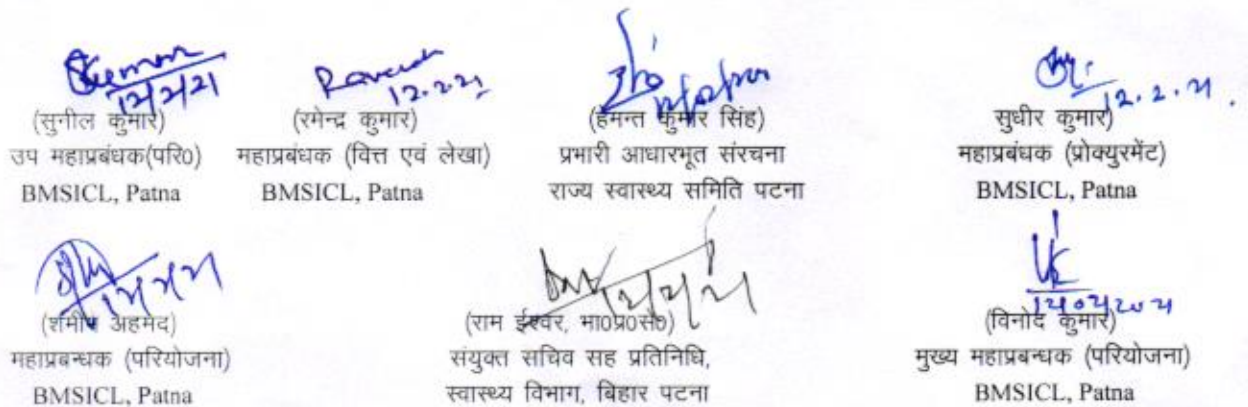 12/2/21
(सुनील कुमार)
उप महाप्रबंधक(परि०)
BMSICL, Patna
12.2.21
(रमेन्द्र कुमार)
महाप्रबंधक (वित्त एवं लेखा)
BMSICL, Patna
(हेमन्त कुमार सिंह)
प्रभारी आधारभूत संरचना
राज्य स्वास्थ्य समिति पटना
12.2.21.
सुधीर कुमार)
महाप्रबंधक (प्रोक्युरमेंट)
BMSICL, Patna
(शमीम अहमद)
महाप्रबन्धक (परियोजना)
BMSICL, Patna
(राम ईश्वर, भा०प्र०से०)
संयुक्त सचिव सह प्रतिनिधि,
स्वास्थ्य विभाग, बिहार पटना
(विनोद कुमार)
मुख्य महाप्रबन्धक (परियोजना)
BMSICL, Patna